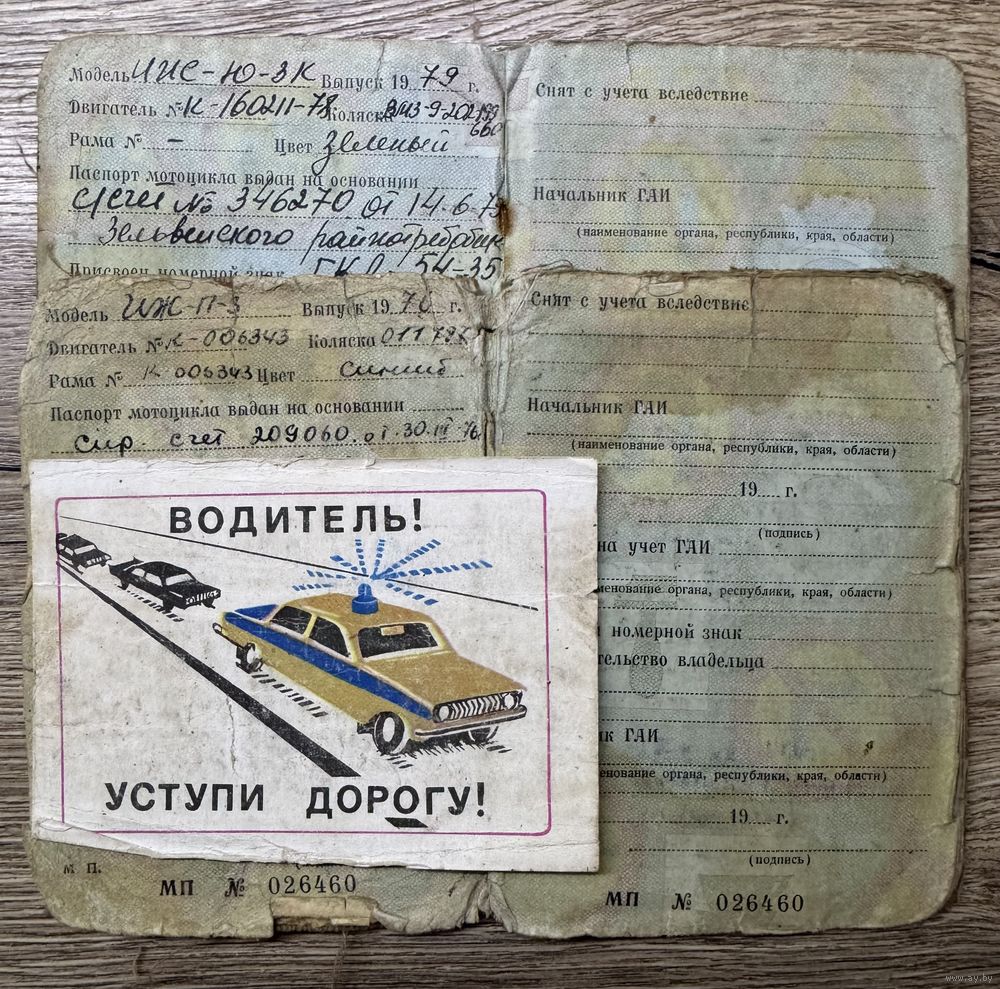 Модель ИЖ-Ю-3К Выпуск 1979 г.
Двигатель № К-160211-78 Коляска
Рама № - Цвет Зеленый
Паспорт мотоцикла выдан на основании
счет № 346270 от 14.6.79
Зельвенского
Присвоен номерной знак 54-35
Снят с учета вследствие
Начальник ГАИ
(наименование органа, республики, края, области)
Модель ИЖ-П-3 Выпуск 1976 г.
Двигатель № К-006343 Коляска
Рама № К 006343 Цвет синий
Паспорт мотоцикла выдан на основании
счет 209060 от 30.III 76
Снят с учета вследствие
Начальник ГАИ
(наименование органа, республики, края, области)
19 г.
(подпись)
на учет ГАИ
органа, республики, края, области)
номерной знак
владельца
ГАИ
органа, республики, края, области)
19 г.
(подпись)
МП № 026460
ВОДИТЕЛЬ!
УСТУПИ ДОРОГУ!
М П.
МП № 026460
www.ay.by